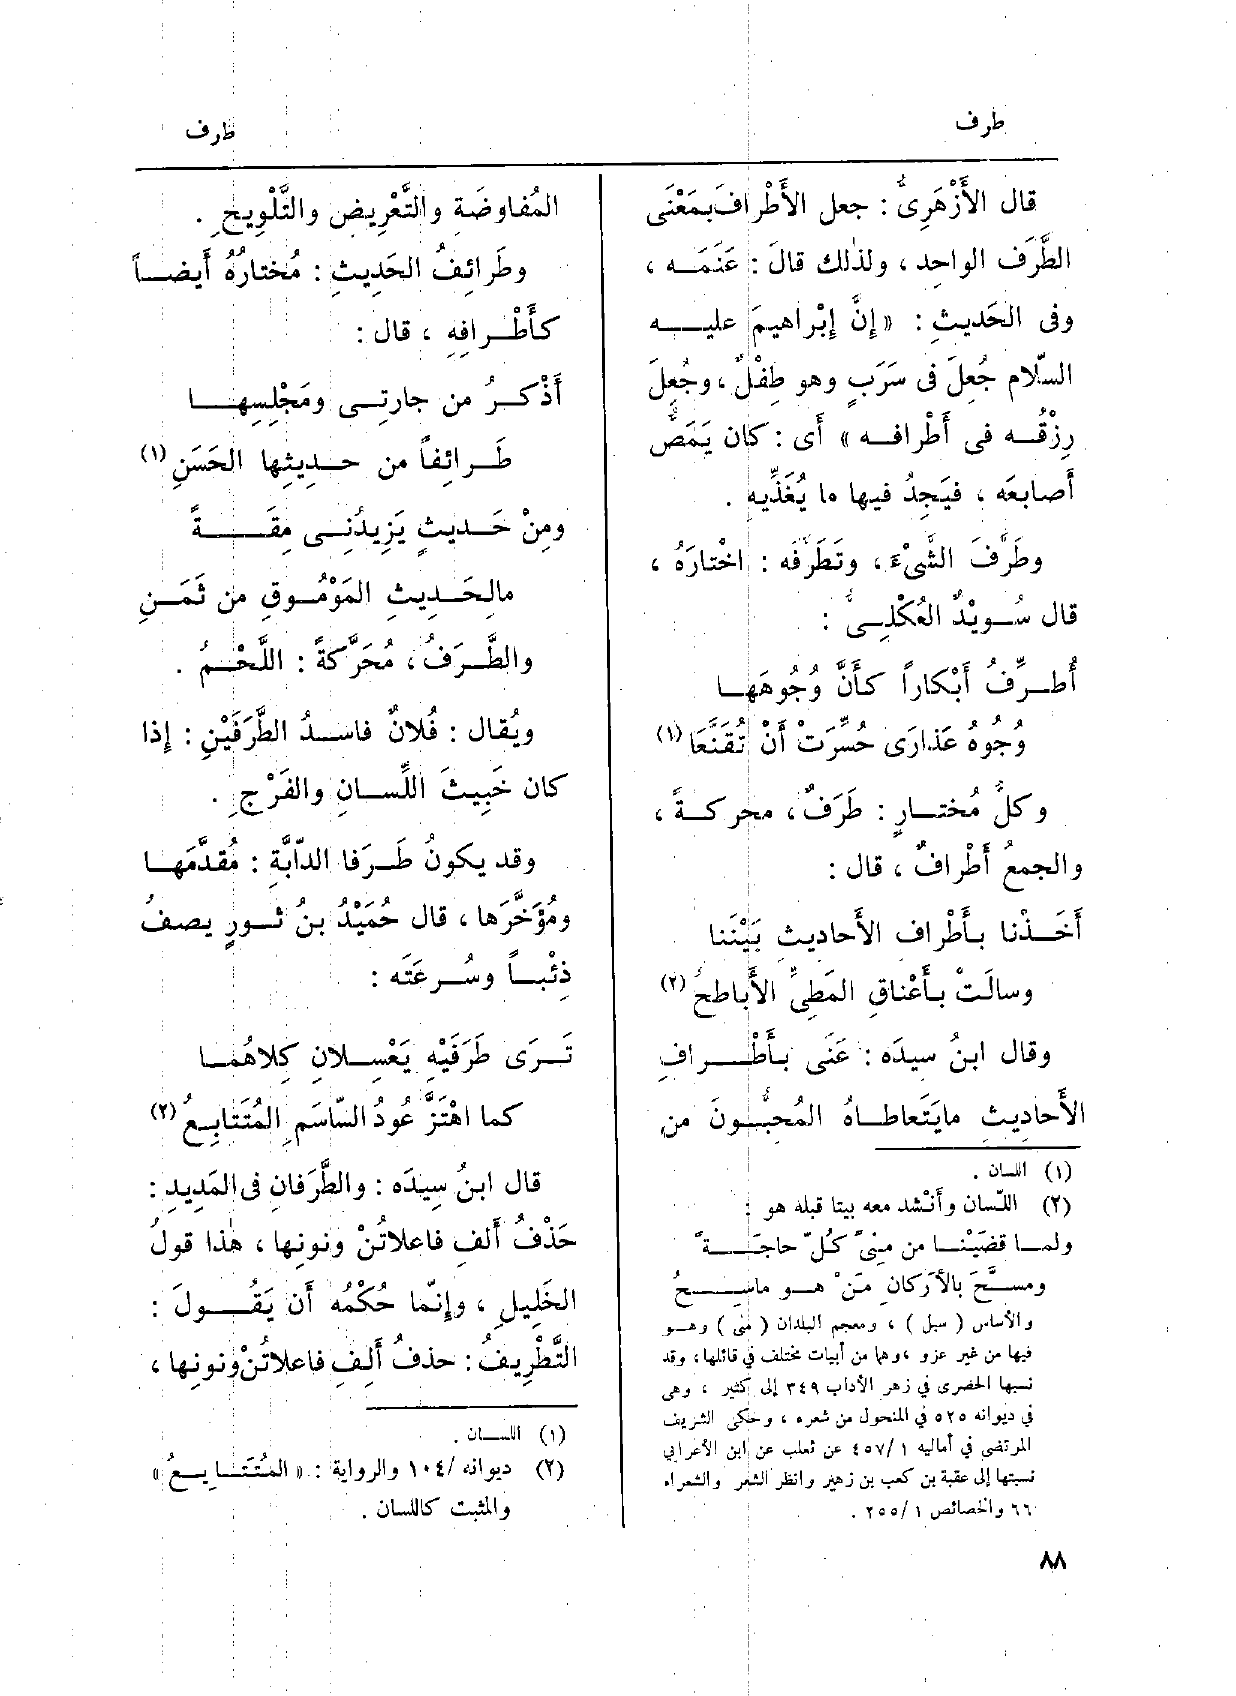 طرف
طرف
قال الأَزْهَرِىُّ : جعل الأَطْرافَ بمَعْنَى
الطَّرَف الواحِد ، ولذلك قالَ : عَنَمَه ،
وفى الحَدِيثِ : « إِنَّ إِبْراهيمَ عليه
السّلام جُعِلَ فى سَرَبٍ وهو طِفْلٌ ، وجُعِلَ
رِزْقُه فى أَطْرافه » أَى : كان يَمَصُّ
أَصابعَه ، فيَجِدُ فيها ما يُغَذِّيه .
وطَرَّفَ الشَّىْءَ ، وتَطَرَّفَه : اخْتارَهُ ،
قال سُويْدٌ العُكْلِىُّ :
أُطرِّفُ أَبْكاراً كأَنَّ وُجُوهَها
وُجُوهُ عَذارَى حُسِّرَتْ أَنْ تُقَنَّعَا (١)
وكلُّ مُختارٍ : طَرَفٌ ، محركةً ،
والجمعُ أَطْرافٌ ، قال :
أَخَذْنا بأَطْراف الأَحاديثِ بَيْنَنا
وسالَتْ بأَعْناقِ المَطِىِّ الأَباطحُ (٢)
وقال ابنُ سيدَه : عَنَى بأَطْرافِ
الأَحادِيثِ مايَتَعاطاهُ المُحِبُّونَ من
(١) اللسان .
(٢) اللّسان وأَنْشد معه بيتا قبله هو :
ولما قضَيْنا من مِنىً كُلّ حاجَةً
ومسحَّ بالأَرْكانِ مَنْ هو ماسِحُ
والأساس ( سبل ) ، ومعجم البلدان ( منى ) وهو
فيها من غير عزو ، وهما من أبيات مختلف في قائلها ، وقد
نسبها الحضرى في زهر الآداب ٣٤٩ إلى كثير ، وهى
في ديوانه ٥٢٥ في المنحول من شعره ، وحكى الشريف
المرتضى في أماليه ١ /٤٥٧ عن ثعلب عن ابن الأعرابي
نسبتها إلى عقبة بن كعب بن زهير وانظر الشعر والشعراء
٦٦ والخصائص ١ /٢٥٥ .
٨٨
المُفاوضَةِ والتَّعْرِيضِ والتَّلْويحِ .
وطَرائِفُ الحَدِيثِ : مُختارُهُ أَيضاً
كأَطْرافِهِ ، قال :
أَذْكرُ من جارتِى ومَجْلِسِها
طَرائِفاً من حديثِها الحَسَنِ (١)
ومِنْ حَديثٍ يَزِيدُنِى مِقَةً
مالِحَدِيثِ المَوْمُوقِ من ثَمَنِ
والطَّرَفُ ، مُحَرَّكةً : اللَّحْمُ .
ويُقال : فُلانٌ فاسدُ الطَّرَفَيْنِ : إِذا
كان خَبِيثَ اللِّسانِ والفَرْجِ .
وقد يكونُ طَرَفا الدابَّةِ : مُقدَّمَها
ومُؤَخَّرَها ، قال حُمَيْدُ بنُ ثورٍ يصفُ
ذِئْباً وسُرعَتَه :
تَرَى طَرَفَيْهِ يَعْسِلانِ كِلاهُما
كما اهْتَزَّ عُودُ السّاسَمِ المُتَتابِعُ (٢)
قال ابنُ سِيدَه : والطَّرَفانِ فى المَدِيدِ :
حَذْفُ أَلفِ فاعلاتُنْ ونونِها ، هٰذا قولُ
الخَلِيلِ ، وإِنَّما حُكْمُه أَن يَقُولَ :
التَّطْرِيفُ : حذفُ أَلِفِ فاعلاتُنْ ونونِها ،
(١) اللسان .
(٢) ديوانه /١٠٤ والرواية : « المُتَتَايعُ »
والمثبت كاللسان .